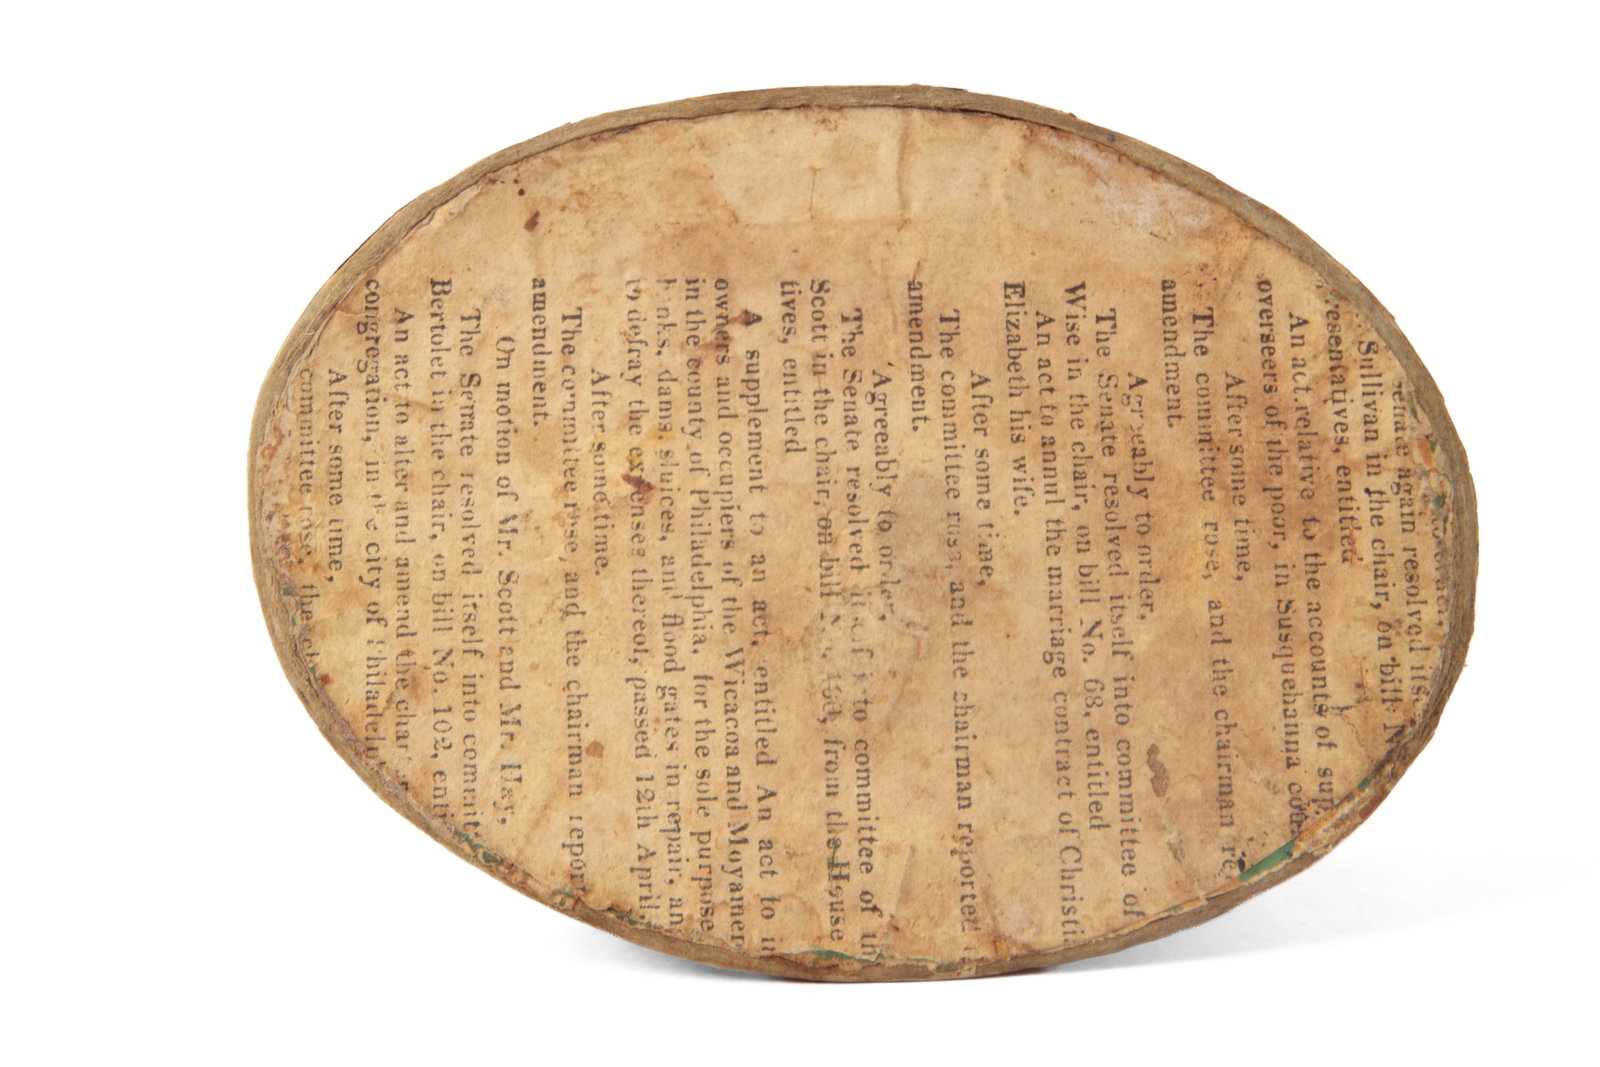 again resolved its
Sullivan in the chair, on bill N
resentatives, entitled
An act relative to the accounts of sup
overseers of the poor, in Susquehanna co
After some time,
The committee rose, and the chairman re
amendment.
Agreeably to order,
The Senate resolved itself into committee of
Wise in the chair, on bill No. 68, entitled
An act to annul the marriage contract of Christi
Elizabeth his wife.
After some time,
The committee rose, and the chairman reported
amendment.
Agreeably to order,
The Senate resolved itself into committee of th
Scott in the chair, on bill from the House
tives, entitled
A supplement to an act, entitled An act to
owners and occupiers of the Wicacoa and Moyamen
in the county of Philadelphia, for the sole purpose
banks, dams, sluices, and flood gates in repair, an
to defray the expenses thereof, passed 12th April,
After some time.
The committee rose, and the chairman report
amendment.
On motion of Mr. Scott and Mr. Hay,
The Senate resolved itself into committ
Bertolet in the chair, on bill No. 102, enti
An act to alter and amend the char
congregation, in the city of Philadelp
After some time,
committee rose, the ch